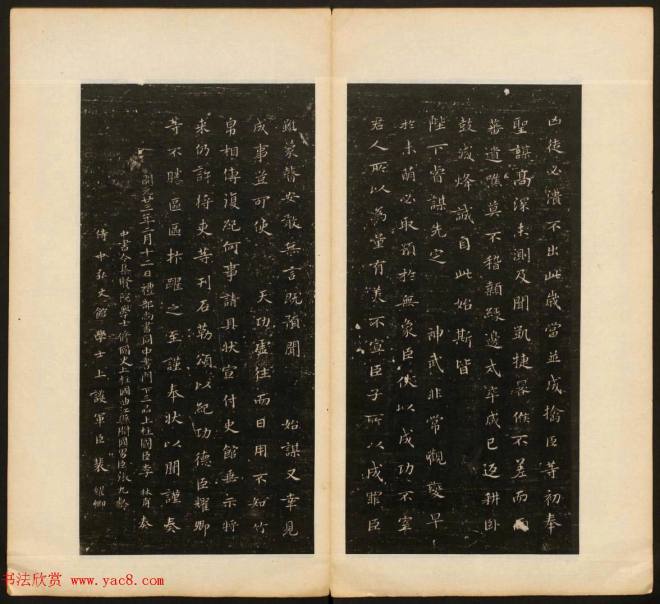 凶徒必潰不出此歲當並成擒臣等初奉
聖謀高深未測及聞凱捷晷候不差而
蕃遺噍莫不稽顙緣邊戍卒咸已迈耕卧
鼓滅烽誠自此始斯皆
陛下睿謀先之 神武非常觀變早
於未萌必取預於無象臣俟以成功不宰
君人所以為量有美不宣臣子所以成罪臣
雖蒙瞽安敢無言既預聞 始謀又幸見
成事豈可使 天功虛往而日用不知竹
帛相傳復紀何事請具狀宣付史館垂示將
來仍許將吏等刊石勒頌以紀功德臣耀卿
等不勝區區抃躍之至謹奉狀以聞謹奏
開元廿三年二月十二日禮部尚書同中書門下三品上柱國臣李林甫奏
中書令集賢院學士修國史上柱國曲江縣開國男臣張九齡
侍中弘文館學士上護軍臣裴耀卿
书法欣赏 www.yac8.com